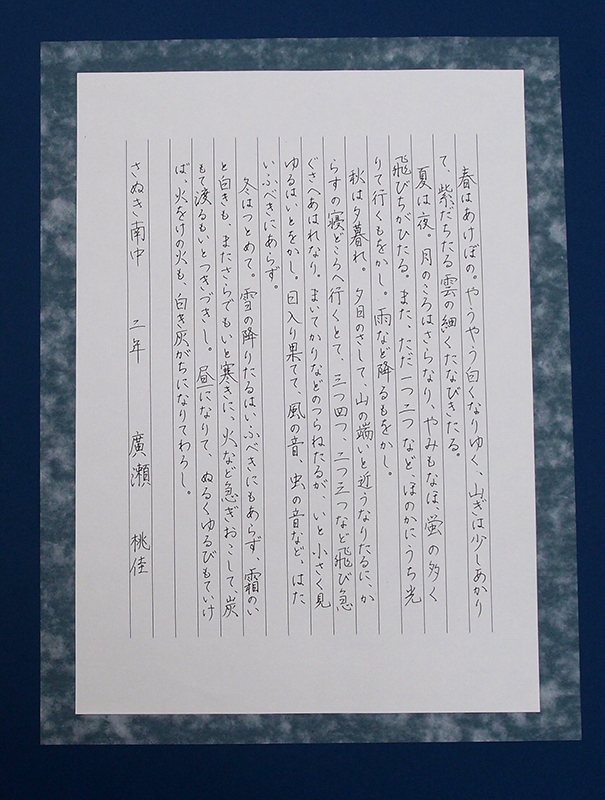 春はあけぼの。やうやう白くなりゆく、山ぎは少しあかり
て、紫だちたる雲の細くたなびきたる。
夏は夜。月のころはさらなり、やみもなほ、蛍の多く
飛びちがひたる。また、ただ一つ二つなど、ほのかにうち光
りて行くもをかし。雨など降るもをかし。
秋は夕暮れ。夕日のさして、山の端いと近うなりたるに、か
らすの寝どころへ行くとて、三つ四つ、二つ三つなど飛び急
ぐさへあはれなり。まいてかりなどのつらねたるが、いと小さく見
ゆるは、いとをかし。日入り果てて、風の音、虫の音など、はた
いふべきにあらず。
冬はつとめて。雪の降りたるはいふべきにもあらず、霜のい
と白きも、またさらでもいと寒きに、火など急ぎおこして、炭
もて渡るもいとつきづきし。昼になりて、ぬるくゆるびもていけ
ば、火をけの火も、白き灰がちになりてわろし。
さぬき南中 二年 廣瀬 桃佳